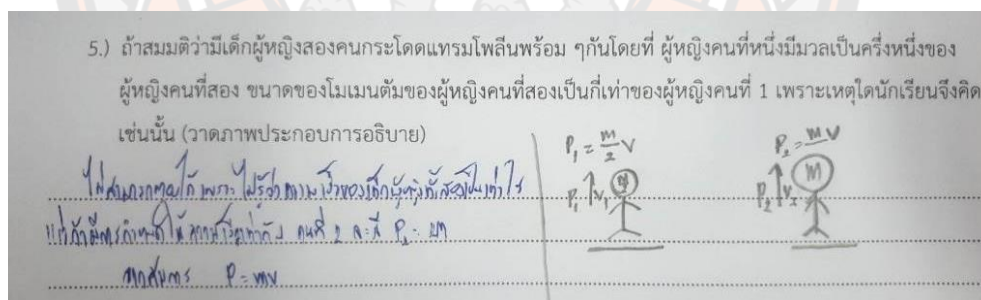 5.) ถ้าสมมติว่ามีเด็กผู้หญิงสองคนกระโดดแทรมโพลีนพร้อม ๆกันโดยที่ ผู้หญิงคนที่หนึ่งมีมวลเป็นครึ่งหนึ่งของ
ผู้หญิงคนที่สอง ขนาดของโมเมนตัมของผู้หญิงคนที่สองเป็นกี่เท่าของผู้หญิงคนที่ 1 เพราะเหตุใดนักเรียนจึงคิด
เช่นนั้น (วาดภาพประกอบการอธิบาย)
ไม่สามารถตอบได้ เพราะ ไม่รู้ว่าความเร็วของเด็กผู้หญิงทั้งสองเป็นเท่าไร
แต่ถ้ามีการกำหนดให้ความเร็วเท่ากัน คนที่ 2 จะมี P₂ =
จากสมการ P = mv
P₁ = m/2 v
P₁ v₁
P₂ = mv
P₂ v₂ m